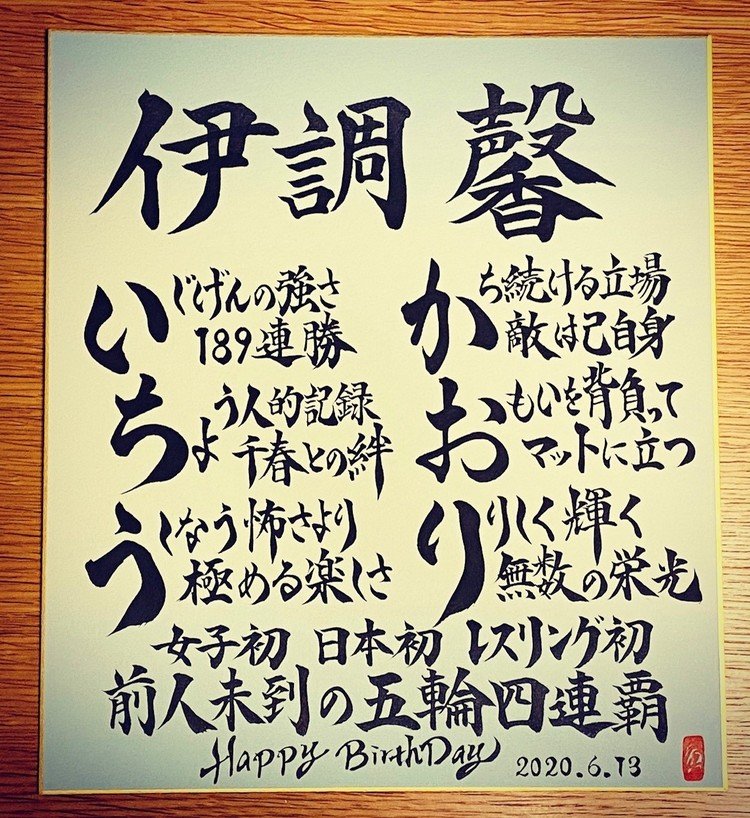 伊調 馨
いじげんの強さ
189連勝
ちょう人的記録
千春との絆
うしなう怖さより
極める楽しさ
かち続ける立場
敵は己自身
おもいを背負って
マットに立つ
りりしく輝く
無数の栄光
女子初 日本初 レスリング初
前人未到の五輪四連覇
Happy BirthDay 2020.6.13